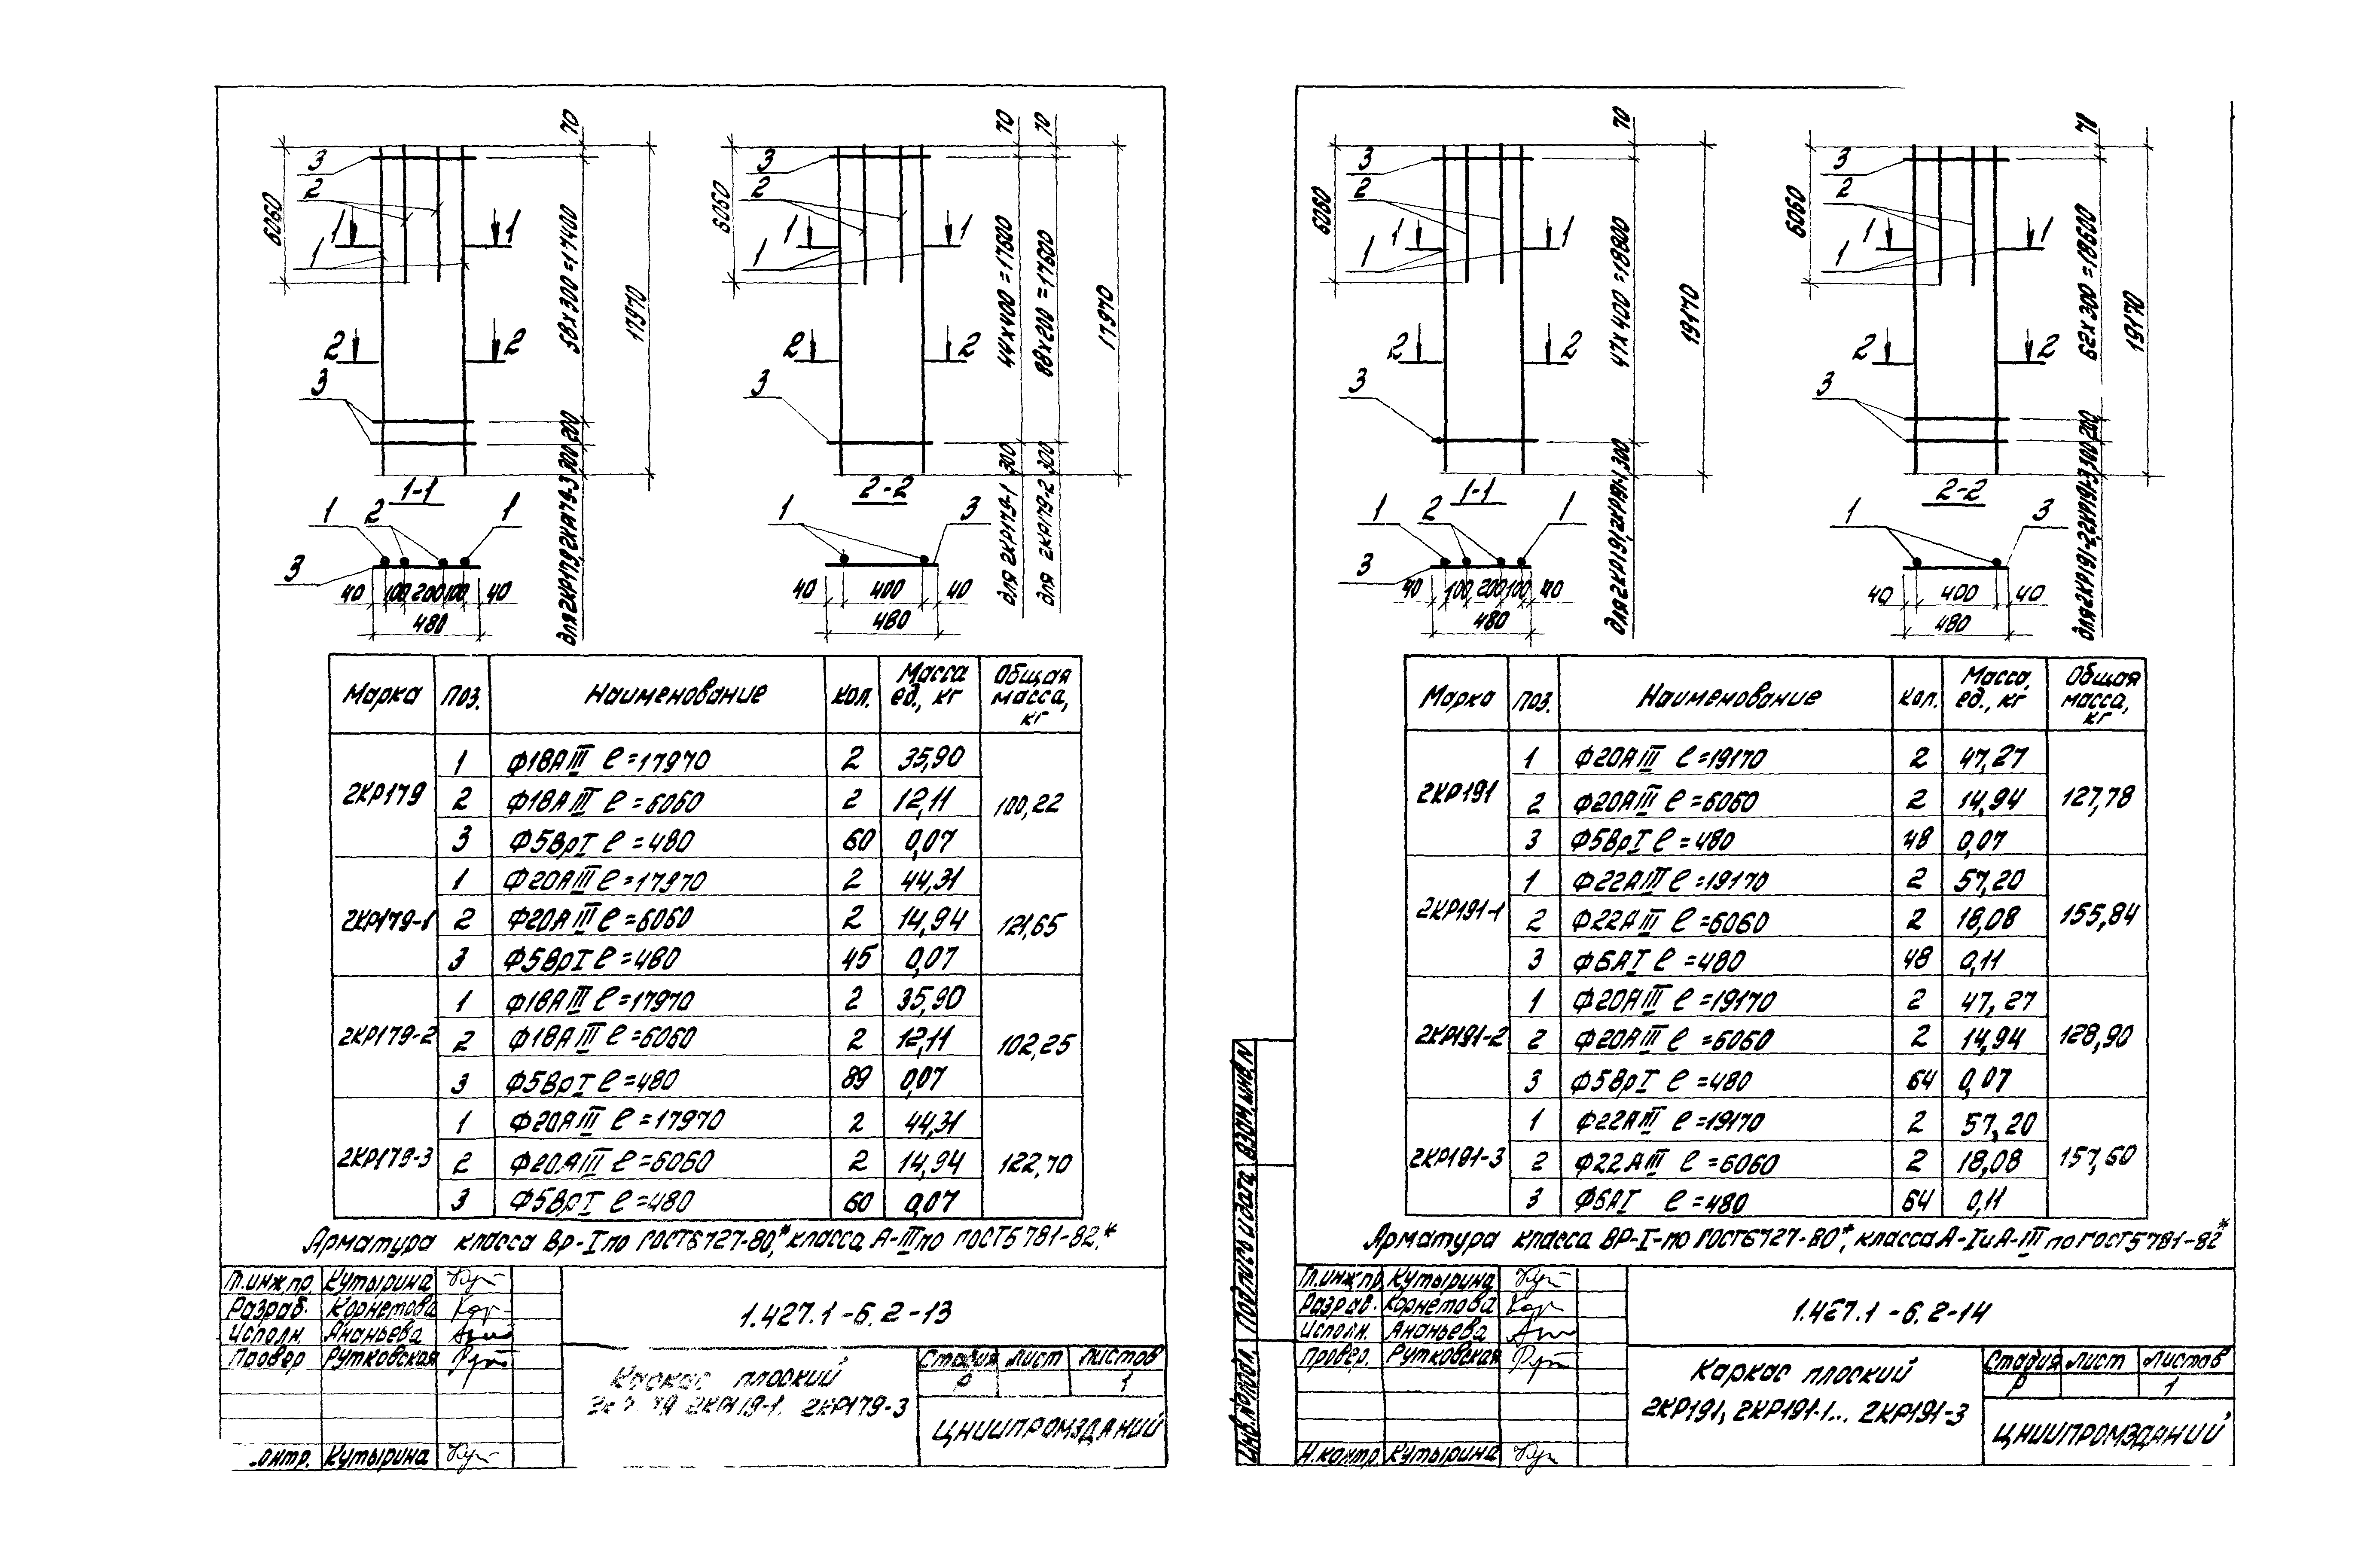 70
3
2
6060
1
1
1
58х300=17400
17970
2
2
3
200
300
для 2КР179, 2КР179-3
70
70
3
2
6060
1
1
1
44х400=17600
88х200=17600
17970
2
2
3
300
300
для 2КР179-1
для 2КР179-2
1-1
1
2
1
3
40 100 200 100 40
480
2-2
1
3
40 400 40
480
Марка Поз. Наименование Кол. Масса ед., кг Общая масса, кг
2КР179 100,22
1 Ф18АIII ℓ=17970 2 35,90
2 Ф18АIII ℓ=6060 2 12,11
3 Ф5ВрI ℓ=480 60 0,07
2КР179-1 121,65
1 Ф20АIII ℓ=17970 2 44,31
2 Ф20АIII ℓ=6060 2 14,94
3 Ф5ВрI ℓ=480 45 0,07
2КР179-2 102,25
1 Ф18АIII ℓ=17970 2 35,90
2 Ф18АIII ℓ=6060 2 12,11
3 Ф5ВрI ℓ=480 89 0,07
2КР179-3 122,70
1 Ф20АIII ℓ=17970 2 44,31
2 Ф20АIII ℓ=6060 2 14,94
3 Ф5ВрI ℓ=480 60 0,07
Арматура класса Вр-I по ГОСТ6727-80*, класса А-III по ГОСТ5781-82.*
Гл.инж.пр. Кутырина
Разраб. Корнетова
Исполн. Ананьева
Провер Рутковская
.онтр. Кутырина
1.427.1-6.2-13
Каркас плоский
2КР179-1. 2КР179-3
Стадия Лист Листов
Р 1
ЦНИИПРОМЗДАНИЙ
70
3
2
6060
1
1
1
47х400=18800
19170
2
2
3
300
для 2КР191, 2КР191-1
70
3
2
6060
1
1
1
62х300=18600
19170
2
2
3
200
300
для 2КР191-2, 2КР191-3
1-1
1
2
1
3
40 100 200 100 40
480
2-2
1
3
40 400 40
480
Марка Поз. Наименование Кол. Масса ед., кг Общая масса, кг
2КР191 127,78
1 Ф20АIII ℓ=19170 2 47,27
2 Ф20АIII ℓ=6060 2 14,94
3 Ф5ВрI ℓ=480 48 0,07
2КР191-1 155,84
1 Ф22АIII ℓ=19170 2 57,20
2 Ф22АIII ℓ=6060 2 18,08
3 Ф6АI ℓ=480 48 0,11
2КР191-2 128,90
1 Ф20АIII ℓ=19170 2 47,27
2 Ф20АIII ℓ=6060 2 14,94
3 Ф5ВрI ℓ=480 64 0,07
2КР191-3 157,60
1 Ф22АIII ℓ=19170 2 57,20
2 Ф22АIII ℓ=6060 2 18,08
3 Ф6АI ℓ=480 64 0,11
Арматура класса ВР-I-по ГОСТ6727-80*, класса А-I и А-III по ГОСТ5781-82*
Инв.№подл. Подпись и дата Взам.инв.N
Гл.инж.пр. Кутырина
Разраб. Корнетова
Исполн. Ананьева
Провер. Рутковская
Н.контр. Кутырина
1.427.1-6.2-14
Каркас плоский
2КР191, 2КР191-1... 2КР191-3
Стадия Лист Листов
Р 1
ЦНИИПРОМЗДАНИЙ